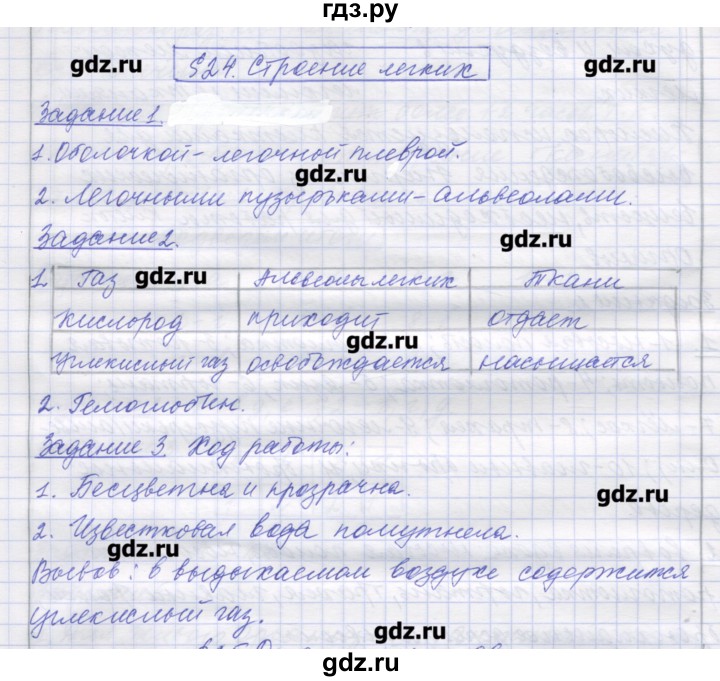 гдз.ру
gdz.ru gdz.ru
§24. Строение легких
Задание 1.
1. Оболочкой - легочной плеврой.
gdz.ru
2. Легочными пузырьками - альвеолами.
Задание 2.
gdz.ru
1. Газ gdz.ru Альвеолы легких Ткани
Кислород приходит отдает
gdz.ru
Углекислый газ освобождается насыщается
2. Гемоглобин.
Задание 3. Ход работы:
1. Бесцветна и прозрачна.
gdz.ru
2. Известковая вода помутнела.
gdz.ru
Вывов: в выдыхаемом воздухе содержится
углекислый газ.
gdz.ru
gdz.ru